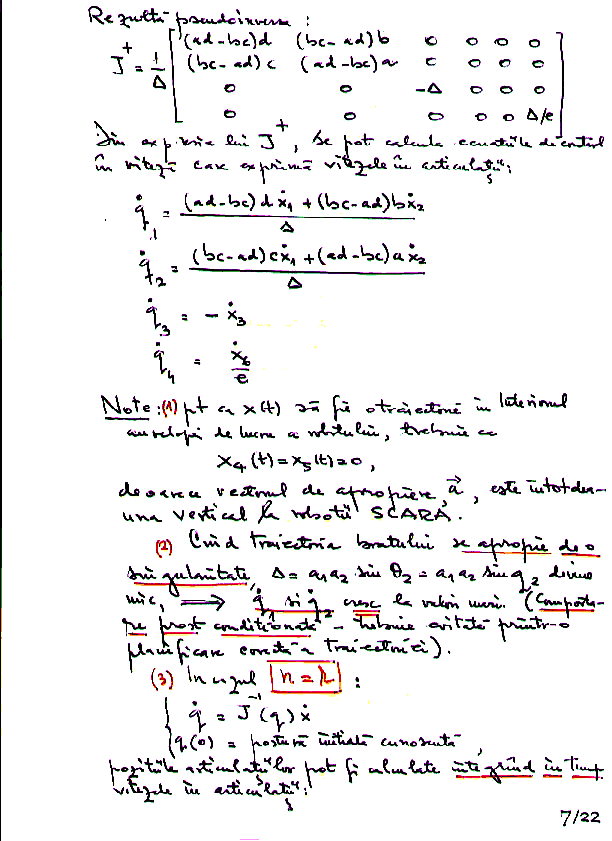 Rezultă pseudoinversa :
J⁺ = 1/Δ [ (ad-bc)d (bc-ad)b 0 0 0 0
(bc-ad)c (ad-bc)a 0 0 0 0
0 0 -Δ 0 0 0
0 0 0 0 0 Δ/e ]
Din expresia lui J⁺, se pot calcula ecuațiile de control
în viteză care exprimă vitezele în articulații:
q̇₁ = ((ad-bc)dẋ₁ + (bc-ad)bẋ₂)/Δ
q̇₂ = ((bc-ad)cẋ₁ + (ad-bc)aẋ₂)/Δ
q̇₃ = - ẋ₃
q̇₄ = ẋ₆/e
Note: (1) pt ca x(t) să fie o traiectorie în interiorul
anvelopei de lucru a robotului, trebuie ca
x₄(t) = x₅(t) = 0,
deoarece vectorul de apropiere, a⃗, este întotdea-
una vertical la roboții SCARA.
(2) Când traiectoria brațului se apropie de o
singularitate, Δ = a₁a₂ sin θ₂ = a₁a₂ sin q₂ devine
mic, ⟹ q̇₁ și q̇₂ cresc la valori mari. (Comporta-
re prost condiționată – trebuie evitată printr-o
planificare corectă a traiectoriei).
(3) În cazul n = r :
{ q̇ = J⁻¹(q) ẋ
q(0) = postură inițială cunoscută,
pozițiile articulațiilor pot fi calculate integrând în timp
vitezele în articulații:
7/22